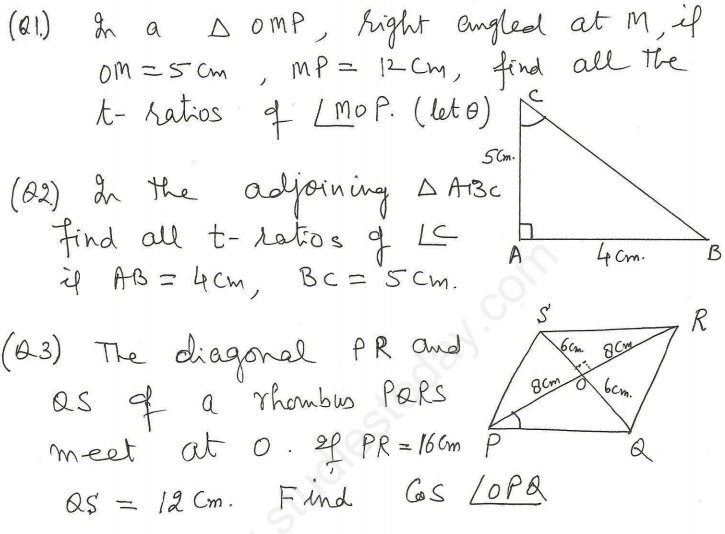 (Q1.) In a △ OMP, right angled at M, if
OM = 5 cm, MP = 12 cm, find all the
t-ratios of ∠MOP. (let θ)
C
5cm.
A
4cm.
B
(Q2) In the adjoining △ ABC
find all t-ratios of ∠C
if AB = 4cm, BC = 5cm.
S
R
6cm.
8cm
8cm
O
6cm.
P
Q
(Q3) The diagonal PR and
QS of a rhombus PQRS
meet at O. If PR = 16cm
QS = 12cm. Find Cos ∠OPQ
studiestoday.com